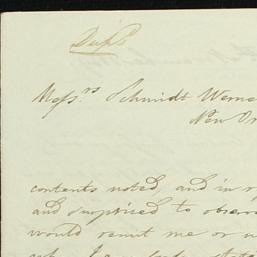 Dupl
Mess.rs Schmidt Werne
New Or
contents noted, and in r
and surprised to observ
would remit me or